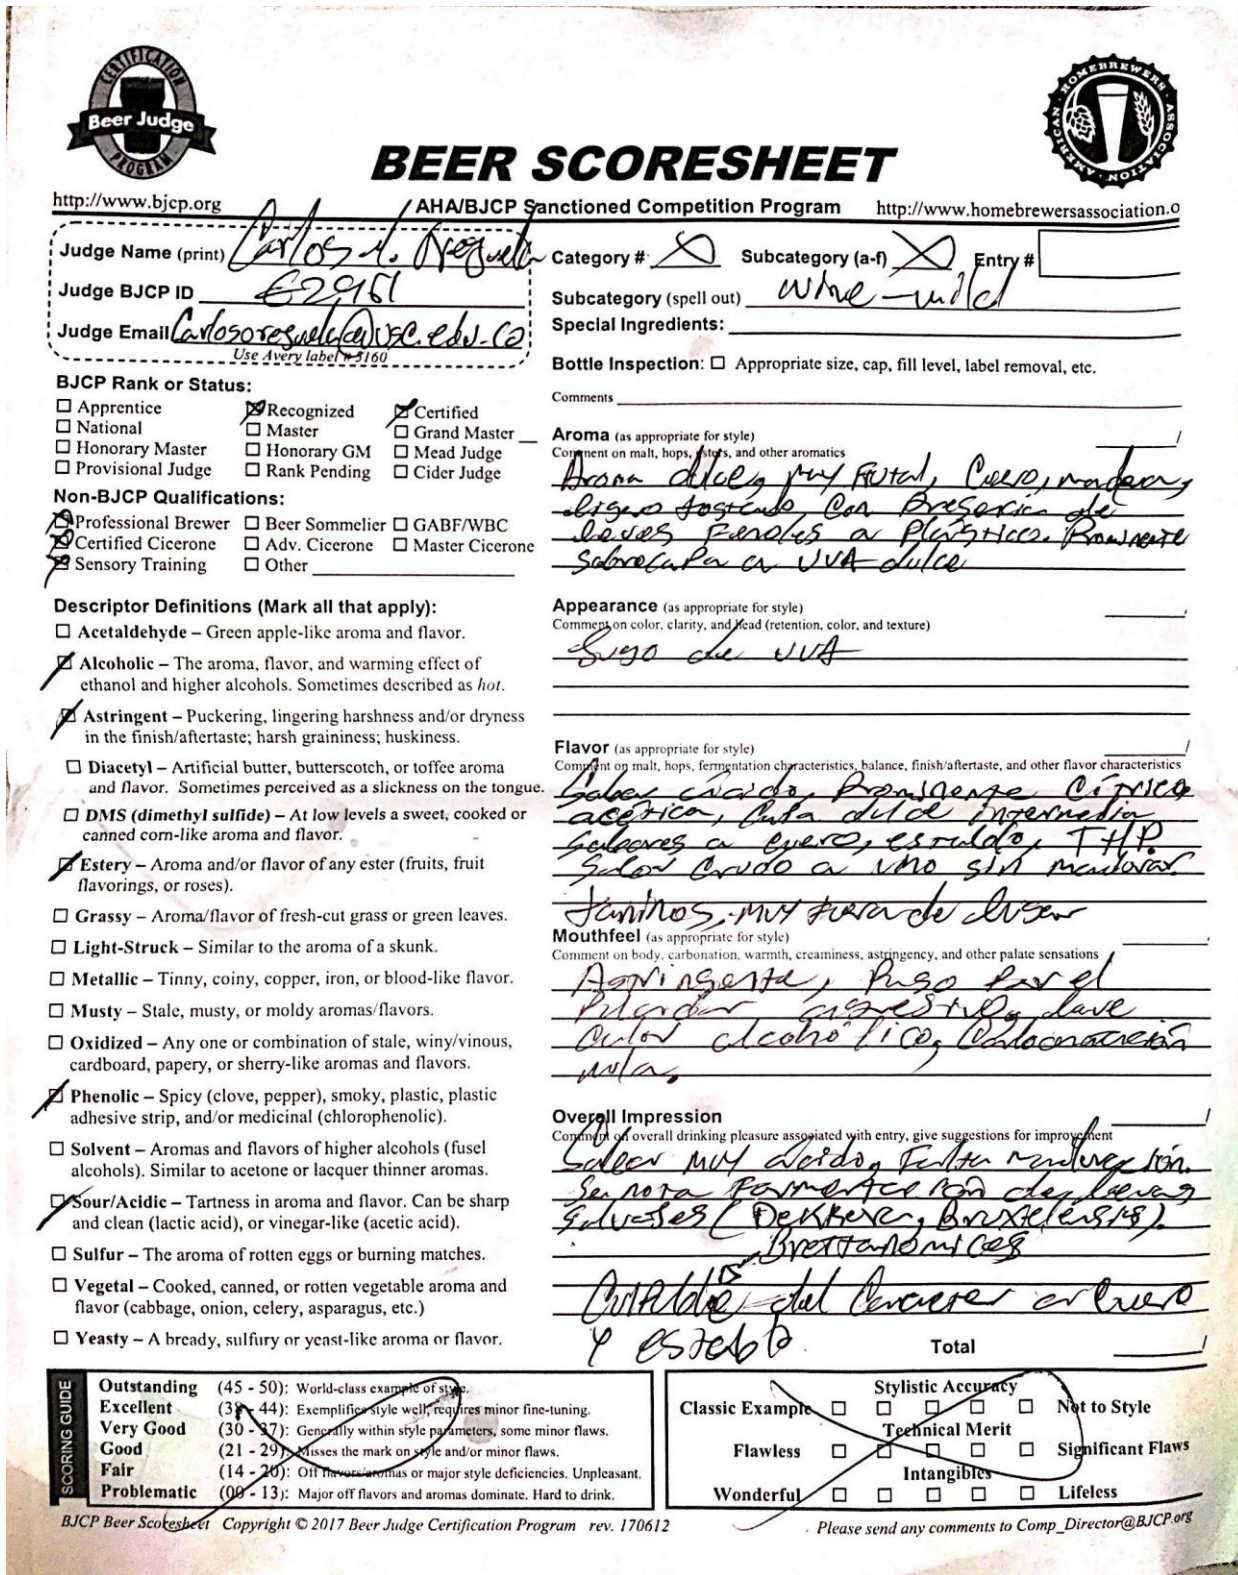 CERTIFICATION
Beer Judge
PROGRAM
AMERICAN HOMEBREWERS ASSOCIATION
BEER SCORESHEET
http://www.bjcp.org
AHA/BJCP Sanctioned Competition Program
http://www.homebrewersassociation.o
Judge Name (print) Carlos
Judge BJCP ID E2951
Judge Email
Use Avery label # 5160
Category #
Subcategory (a-f)
Entry #
Subcategory (spell out) wine-wild
Special Ingredients:
Bottle Inspection: Appropriate size, cap, fill level, label removal, etc.
Comments
BJCP Rank or Status:
Apprentice Recognized Certified
National Master Grand Master
Honorary Master Honorary GM Mead Judge
Provisional Judge Rank Pending Cider Judge
Non-BJCP Qualifications:
Professional Brewer Beer Sommelier GABF/WBC
Certified Cicerone Adv. Cicerone Master Cicerone
Sensory Training Other
Descriptor Definitions (Mark all that apply):
Acetaldehyde – Green apple-like aroma and flavor.
Alcoholic – The aroma, flavor, and warming effect of
ethanol and higher alcohols. Sometimes described as hot.
Astringent – Puckering, lingering harshness and/or dryness
in the finish/aftertaste; harsh graininess; huskiness.
Diacetyl – Artificial butter, butterscotch, or toffee aroma
and flavor. Sometimes perceived as a slickness on the tongue.
DMS (dimethyl sulfide) – At low levels a sweet, cooked or
canned corn-like aroma and flavor.
Estery – Aroma and/or flavor of any ester (fruits, fruit
flavorings, or roses).
Grassy – Aroma/flavor of fresh-cut grass or green leaves.
Light-Struck – Similar to the aroma of a skunk.
Metallic – Tinny, coiny, copper, iron, or blood-like flavor.
Musty – Stale, musty, or moldy aromas/flavors.
Oxidized – Any one or combination of stale, winy/vinous,
cardboard, papery, or sherry-like aromas and flavors.
Phenolic – Spicy (clove, pepper), smoky, plastic, plastic
adhesive strip, and/or medicinal (chlorophenolic).
Solvent – Aromas and flavors of higher alcohols (fusel
alcohols). Similar to acetone or lacquer thinner aromas.
Sour/Acidic – Tartness in aroma and flavor. Can be sharp
and clean (lactic acid), or vinegar-like (acetic acid).
Sulfur – The aroma of rotten eggs or burning matches.
Vegetal – Cooked, canned, or rotten vegetable aroma and
flavor (cabbage, onion, celery, asparagus, etc.)
Yeasty – A bready, sulfury or yeast-like aroma or flavor.
Aroma (as appropriate for style)
Comment on malt, hops, esters, and other aromatics
Aroma dulce, muy Frutal, Cuero, madera,
ligero tostado, Con Presencia de
leves Fenoles a Plástico. Prominente
sobrecapa a UVA dulce
Appearance (as appropriate for style)
Comment on color, clarity, and head (retention, color, and texture)
Jugo de UVA
Flavor (as appropriate for style)
Comment on malt, hops, fermentation characteristics, balance, finish/aftertaste, and other flavor characteristics
Sabor ácido, Prominente Cítrico
acética, dulce intermedia
Sabores a cuero, establo, THP.
Sabor Crudo a vino sin madurar.
taninos, muy fuera de lugar
Mouthfeel (as appropriate for style)
Comment on body, carbonation, warmth, creaminess, astringency, and other palate sensations
Astringente, Paso por el
Paladar agrestivo, leve
Calor alcohólico, Carbonatación
nula,
Overall Impression
Comment on overall drinking pleasure associated with entry, give suggestions for improvement
Sabor muy ácido, Falta maduración.
Se nota Fermentación de levas
Salvajes (Dekkera, Bruxelensis).
Brettanomices
Culpable del Caracter a Cuero
y establo
Total
SCORING GUIDE
Outstanding (45 - 50): World-class example of style.
Excellent (38 - 44): Exemplifies style well, requires minor fine-tuning.
Very Good (30 - 37): Generally within style parameters, some minor flaws.
Good (21 - 29): Misses the mark on style and/or minor flaws.
Fair (14 - 20): Off flavors/aromas or major style deficiencies. Unpleasant.
Problematic (00 - 13): Major off flavors and aromas dominate. Hard to drink.
Stylistic Accuracy
Classic Example Not to Style
Technical Merit
Flawless Significant Flaws
Intangibles
Wonderful Lifeless
BJCP Beer Scoresheet Copyright © 2017 Beer Judge Certification Program rev. 170612
Please send any comments to Comp_Director@BJCP.org